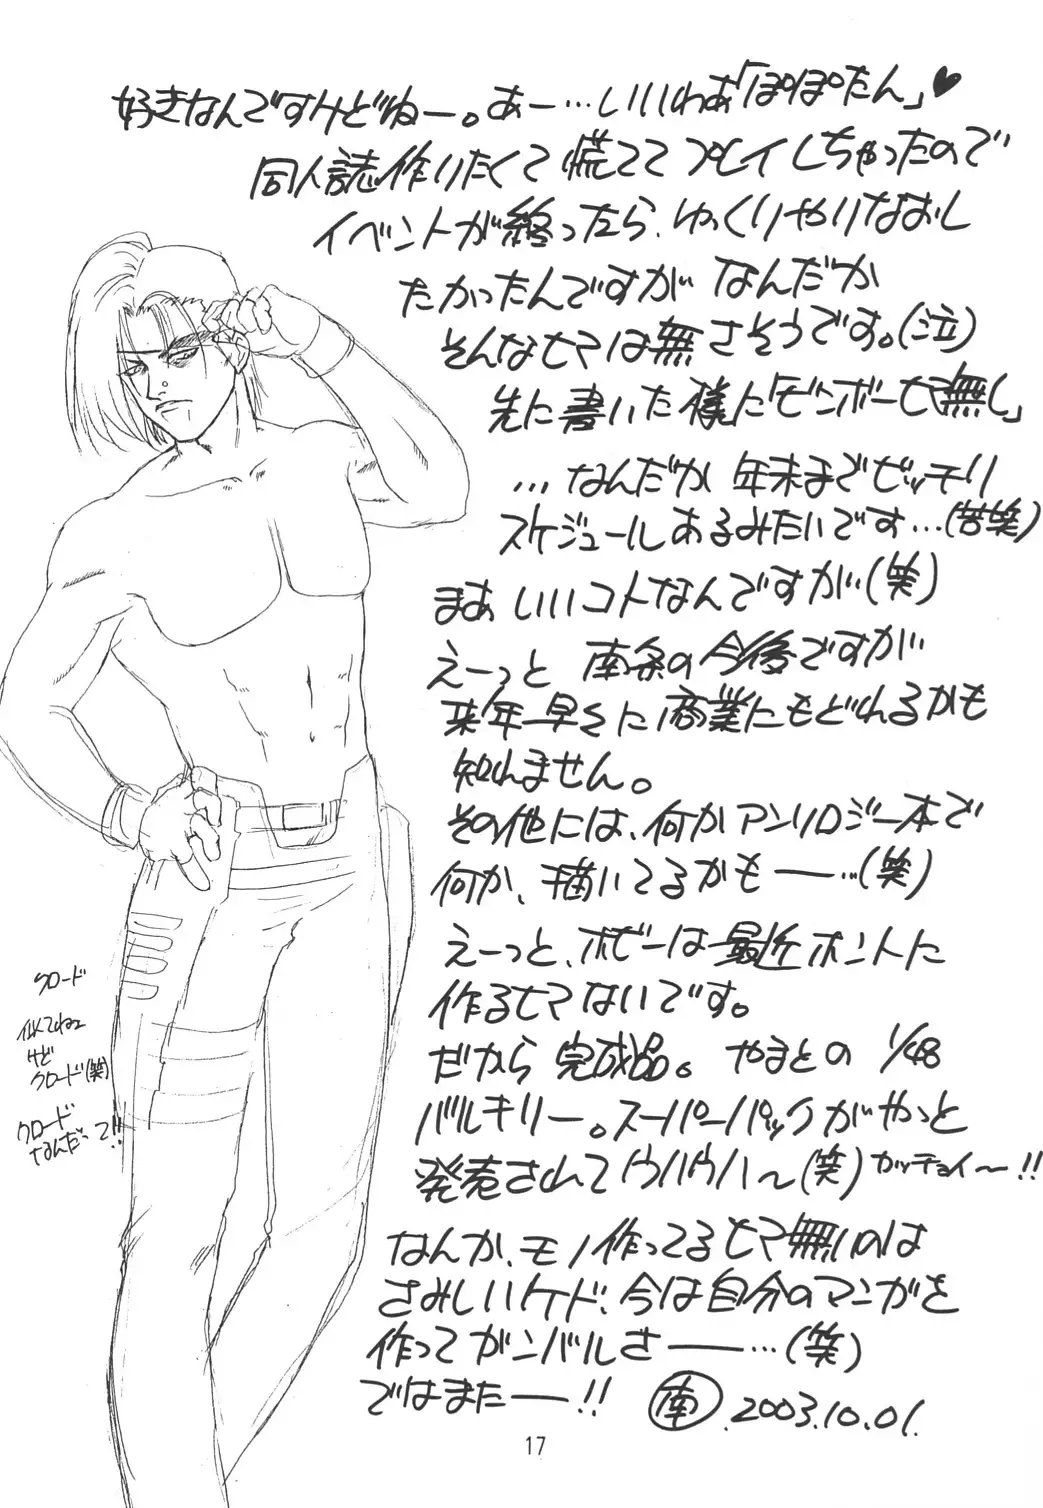 好きなんですけどねー。あー…いいわぁ「ぽぽたん」♥
同人誌作りたくて慌ててプレイしちゃったので
イベントが終ったら、ゆっくりやりなおし
たかったんですが なんだか
そんなヒマは無さそうです。(泣)
先に書いた様に「ビンボーヒマ無し」
…なんだか 年末までビッチリ
スケジュールあるみたいです…(苦笑)
まぁ いいコトなんですが…(笑)
えーっと 南条の今後ですが
来年早々に商業にもどれるかも
知れません。
その他には、何かアンソロジー本で
何か、描いてるかもー…(笑)
えーっと、ホビーは最近ホントに
作るヒマないです。
だから 完成品。 やまとの 1/48
バルキリー。スーパーパックがやっと
発売されてウハウハ〜(笑) カッチョイ〜!!
なんか、モノ作ってるヒマ無いのは
さみしいケド、今は自分のマンガを
作ってガンバルさー…(笑)
ではまたー!! 南 2003.10.01.
クロード
似てねェ
けど
クロード(笑)
クロード
なんだって!!
17